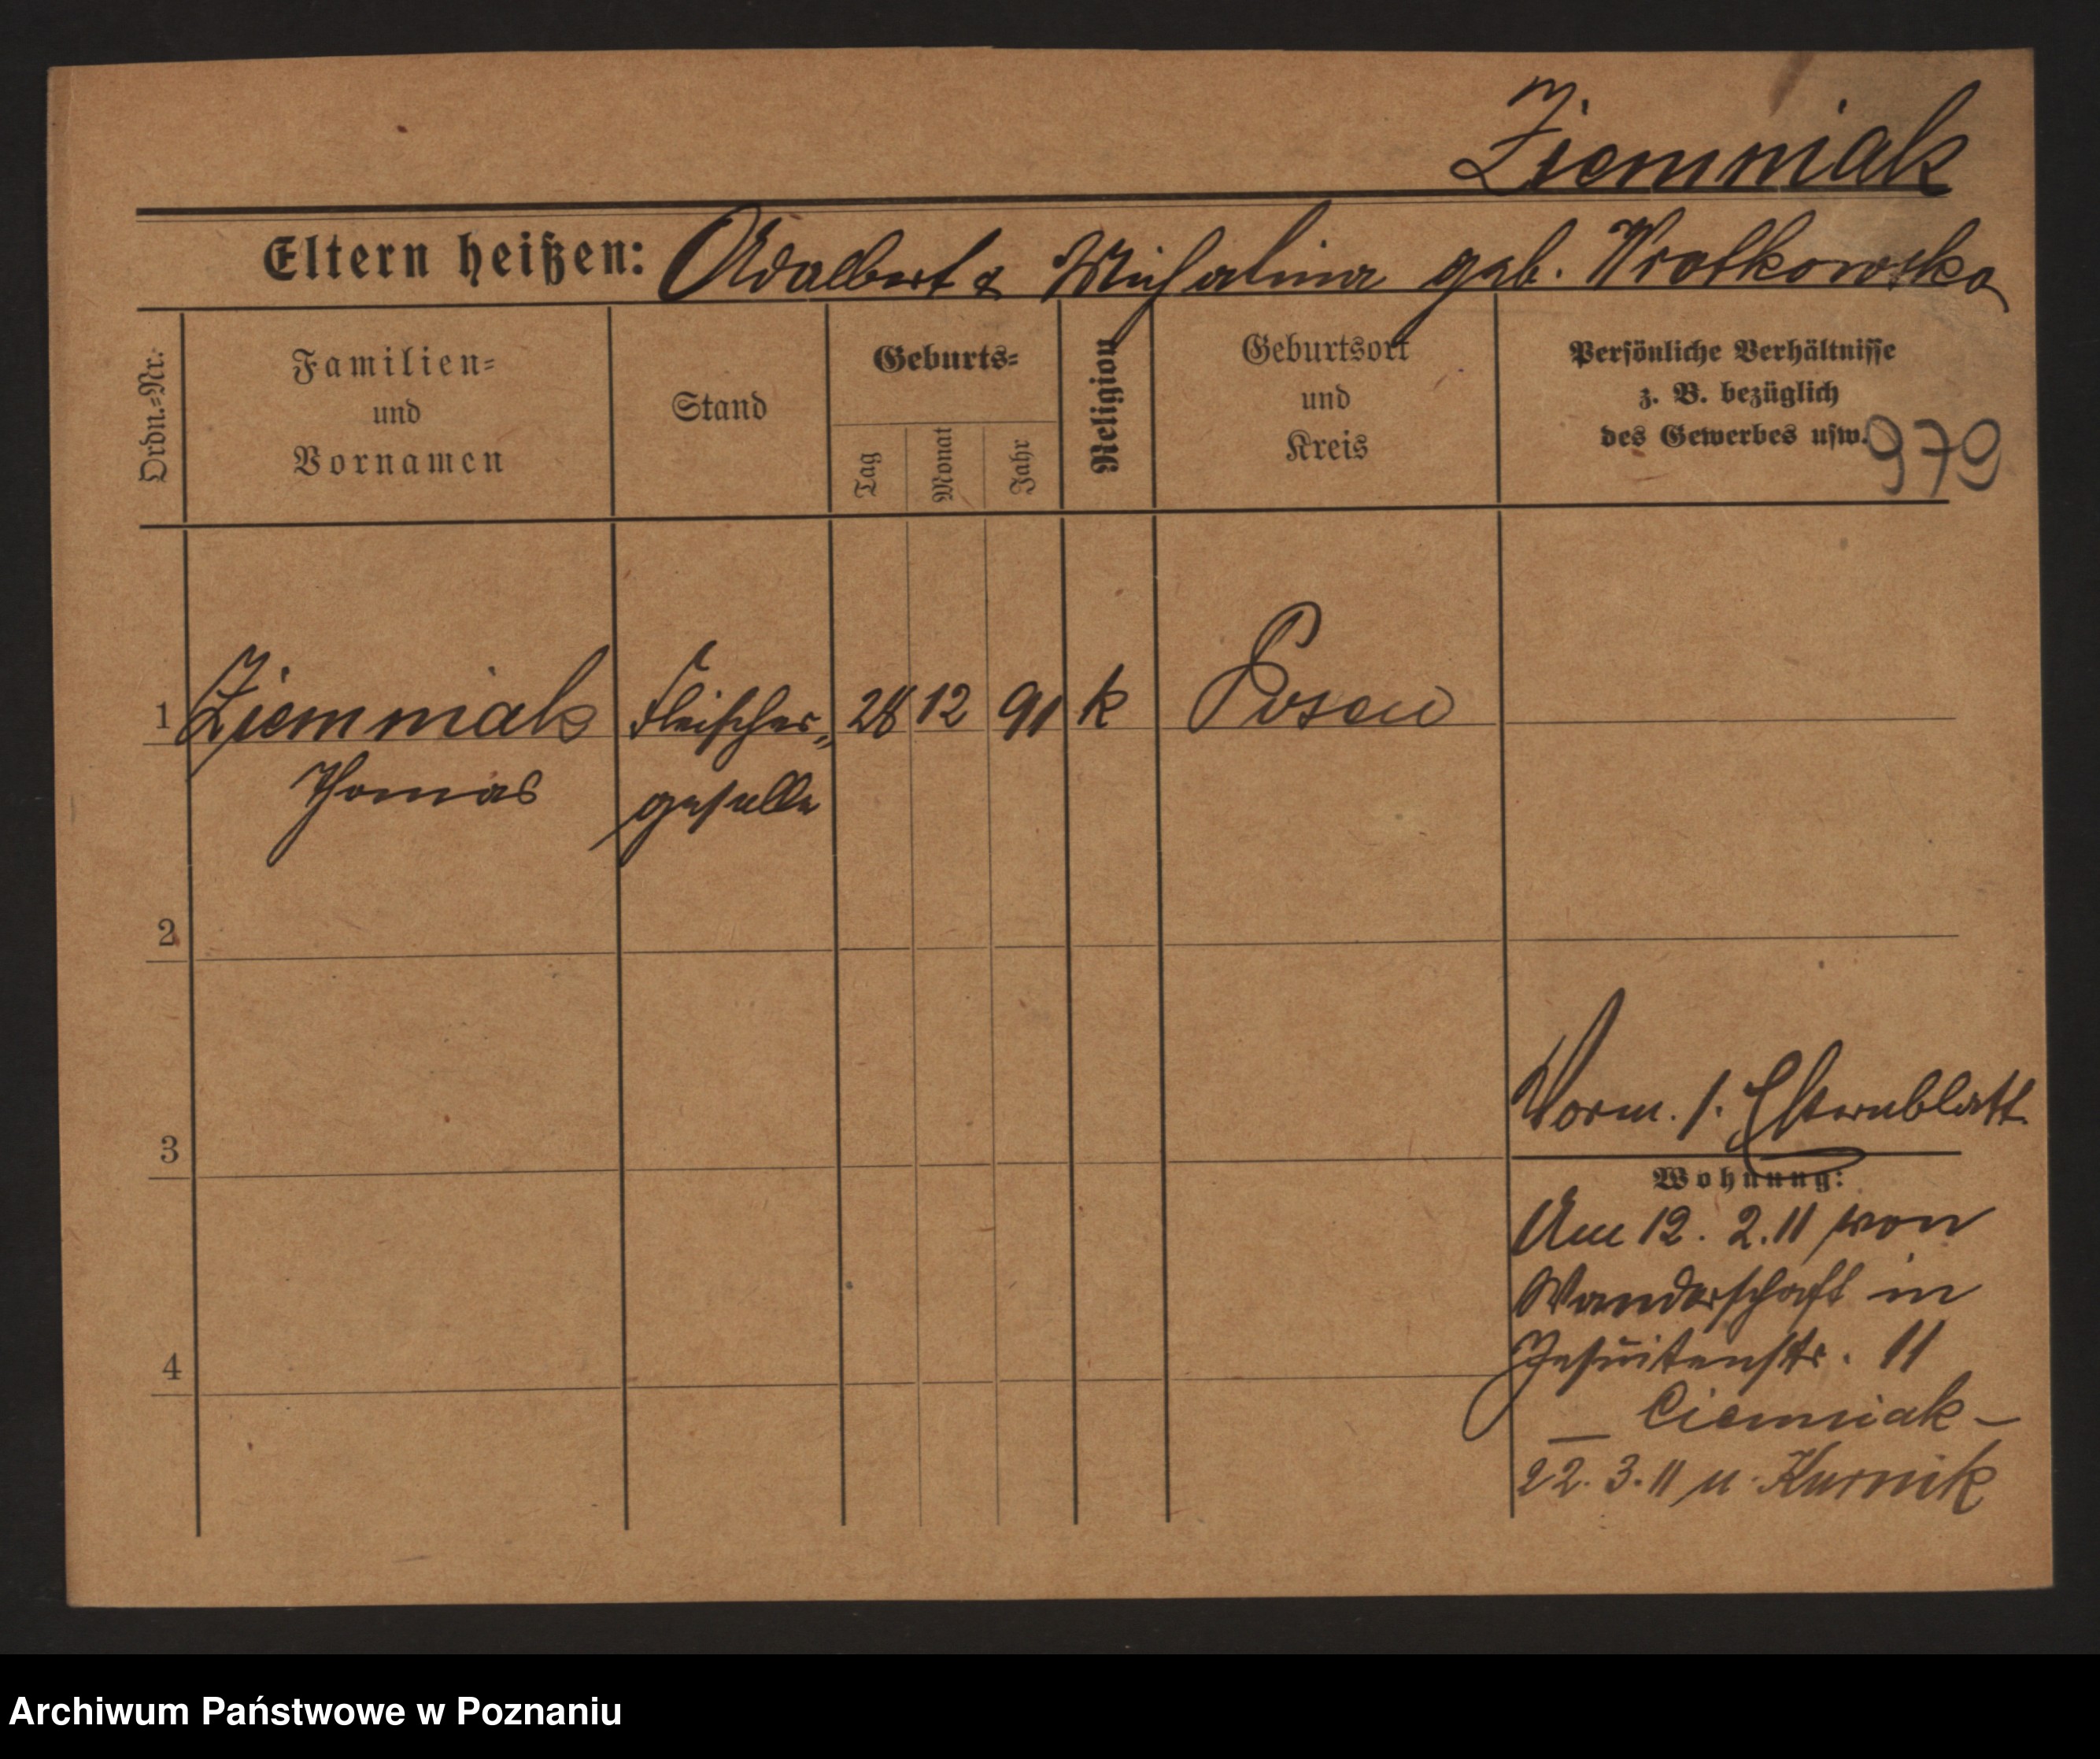 Ziemniak
Eltern heißen: Adalbert & Michalina geb. Wrotkowska
Ordn.=Nr.
Familien=
und
Vornamen
Stand
Geburts=
Tag
Monat
Jahr
Religion
Geburtsort
und
Kreis
Persönliche Verhältnisse
z. B. bezüglich
des Gewerbes usw.
979
1 Ziemniak Fleischer= 28 12 91 k Posen
Thomas geselle
2
3
Vorm. s. Elternblatt
Wohnung:
Am 12. 2. 11 von
Wanderschaft in
Jesuitenstr. 11
4
— Ciemniak —
22. 3. 11 n. Kurnik
Archiwum Państwowe w Poznaniu